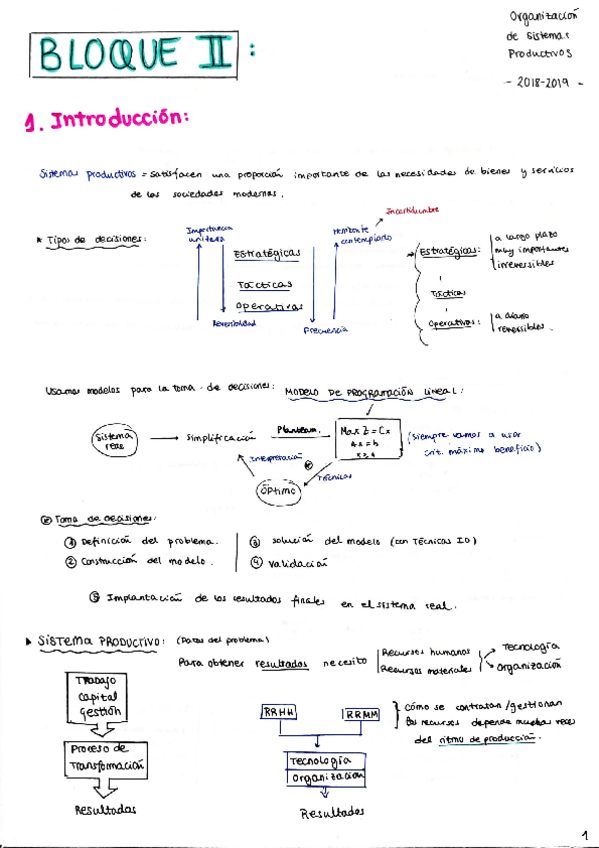 Organización
de Sistemas
Productivos
- 2018-2019 -
BLOQUE II:
1. Introducción:
Sistemas productivos = satisfacen una proporción importante de las necesidades de bienes y servicios
de las sociedades modernas.
* Tipos de decisiones:
Importancia
unitaria
Estratégicas
Tácticas
Operativas
Reversibilidad
Frecuencia
Horizonte
contemplado
Incertidumbre
Estratégicas:
a largo plazo
muy importantes
irreversibles
Tácticas
Operativas:
a diario
reversibles
Usamos modelos para la toma de decisiones: MODELO DE PROGRAMACIÓN LINEAL:
Sistema
real
Simplificación
Planteam.
Max Z = Cx
(siempre vamos a usar
crit. máximo beneficio)
Interpretación
Técnicas
ÓPTIMO
Toma de decisiones:
1 Definición del problema.
2 Construcción del modelo.
3 Solución del modelo (con Técnicas IO)
4 Validación
5 Implantación de los resultados finales en el sistema real.
▸ SISTEMA PRODUCTIVO: (Datos del problema)
Para obtener resultados necesito
Recursos humanos
Recursos materiales
Tecnología
Organización
Trabajo
Capital
Gestión
Proceso de
Transformación
Resultados
RRHH
RRMM
Tecnología
Organización
Resultados
cómo se contratan/gestionan
los recursos depende muchas veces
del ritmo de producción.
1